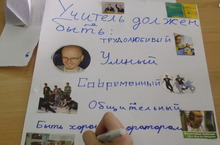 Учитель должен
быть:
трудолюбивый
Умный
Современный
Общительный
Быть хорошим оратором